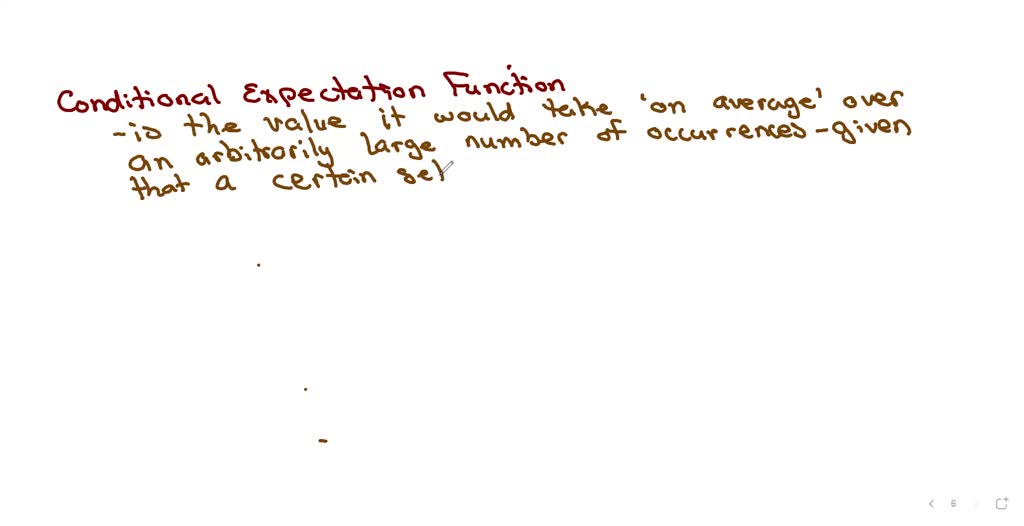 Conditional Expectation Function
- is the value it would take 'on average' over
an arbitrarily large number of occurrences - given
that a certain set
6